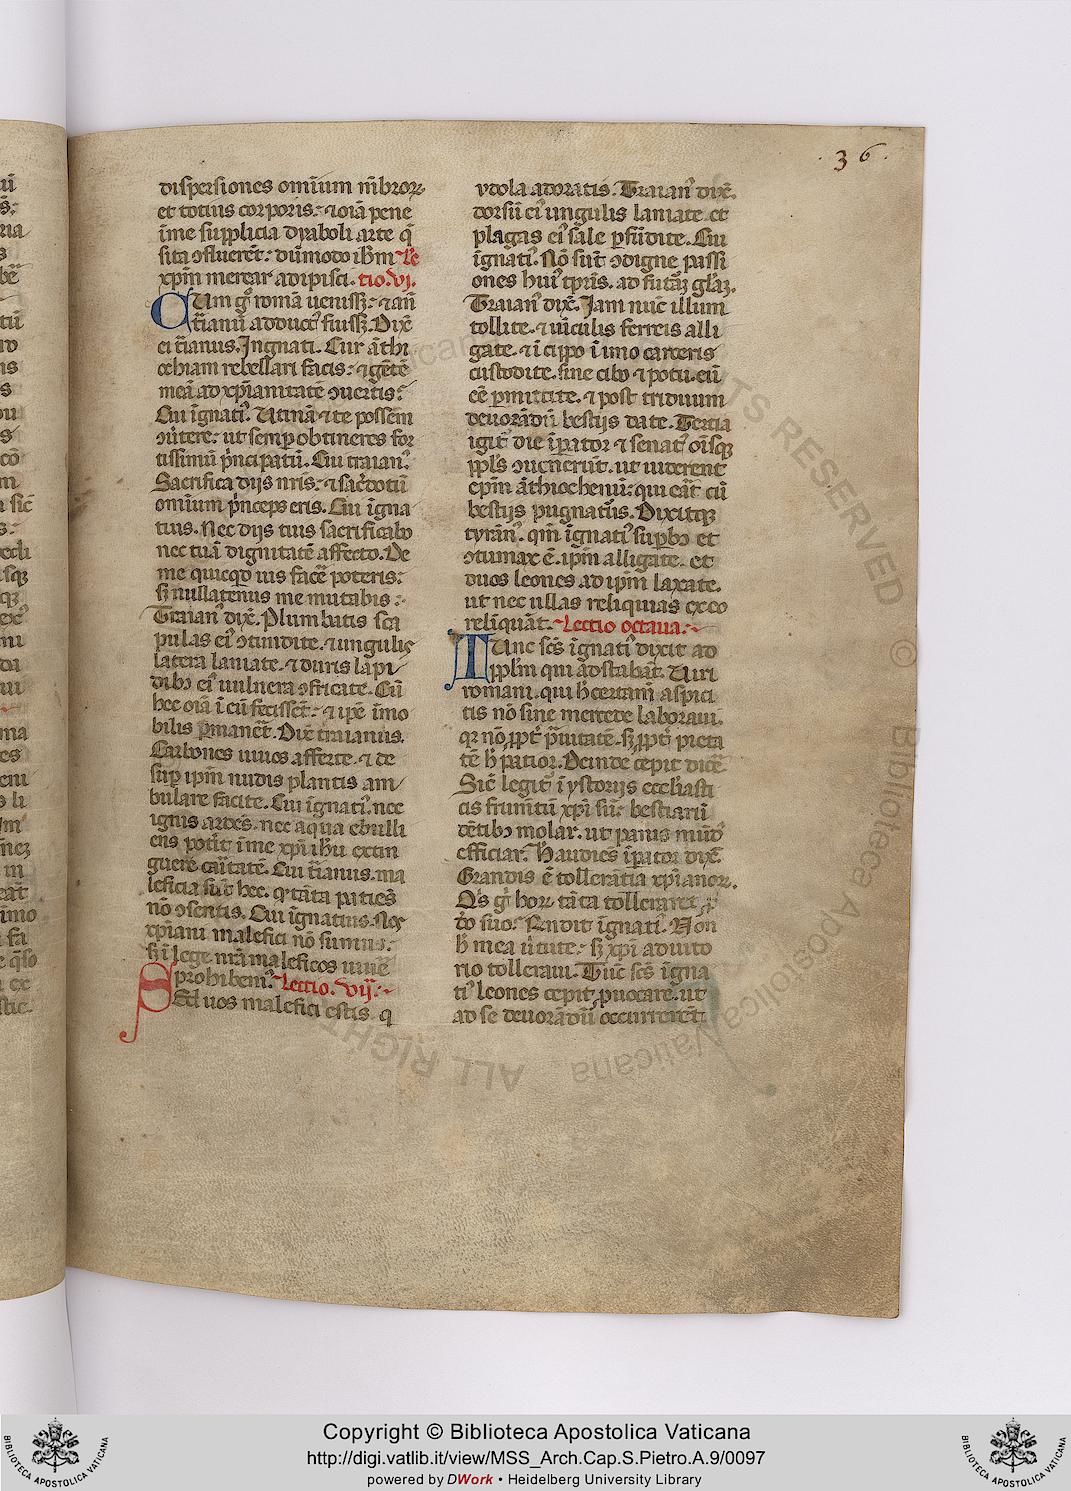 36.
dispersiones omīum mēbrorꝝ
et totius corporis: ⁊ oīa pene
ī me supplicia dyaboli arte q̄
sita ꝯfluerēt: dūmodo ihm̄ Lc̄
xpm̄ merear adipisci. tio. vi.
Cum gͦ romā uenissꝫ: ⁊ an̄
t̄ianū adductꝰ fuissꝫ. Dix̄
ei t̄ianus. Ingnati. Cur āthi
ochiam rebellari facis: ⁊ gētē
meā ad xp̄ianitatē ꝯuertis?
Cui īgnatiꝰ. Utinā ⁊ te possem
ꝯūtere: ut semꝑ obtineres for
tissimū pͥncipatū. Cui traianꝰ.
Sacrifica dijs nr̄is: ⁊ sac̄dotū
omnium pͥnceps eris. Cui īgna
tius. Nec dijs tuis sacrificabo
nec tuā dignitatē affecto. De
me quicqͥd uis facē poteris:
sꝫ nullatenus me mutabis:
Traianꝰ dix̄. Plumbatis sca
pulas eiꝰ ꝯtundite. ⁊ ungulis
latera laniate. ⁊ duris lapi
dibꝫ eiꝰ uulnera ꝯfricate. Cū
hec oīa ī eū fecissēt: ⁊ ip̄e īmo
bilis ꝑmanēt. Dix̄ traianus.
Carbones uiuos afferte. ⁊ de
suꝑ ip̄m nudis plantis am
bulare facite. Cui īgnatiꝰ. nec
ignis ardēs. nec aqua ebulli
ens pot̄it ī me xp̄i ihū extin
guere cāitatē. Cui t̄ianus. ma
leficia sūt hec. qͥ tāta patiēs
nō ꝯsentis. Cui īgnatius. Nos
xp̄iani malefici nō sumus:
sꝫ ī lege nr̄a maleficos uiuē
prohibemꝰ. Lectio. vij.
Sed uos malefici estis. q
ydola adoratis. Traianꝰ dix̄.
dorsū eiꝰ ungulis laniate. et
plagas eiꝰ sale ꝑfūdite. Cui
īgnatiꝰ. Nō sūt ꝯdigne passi
ones huiꝰ tp̄ris. ad futāꝫ gl̄aꝫ.
Traianꝰ dix̄. Jam nūc illum
tollite. ⁊ uīculis ferreis alli
gate. ⁊ ī cippo ī imo carceris
custodite. sine cibo ⁊ potu. eū
eē ꝑmittite. ⁊ post triduum
deuorādū bestijs date. Tertia
igit̄ die īꝑator ⁊ senatꝰ oīsqꝫ
ppl̄s ꝯuenerūt. ut uiderent
ep̄m āthiochenū: qui eāt cū
bestijs pugnatūs. Dixitqꝫ
tyrānꝰ. qm̄ īgnatiꝰ suꝑbꝫ et
ꝯtumax ē. ip̄m alligate. et
duos leones ad ip̄m laxate.
ut nec ullas reliquias ex eo
relīquāt. Lectio octaua.
Tunc sc̄s īgnatiꝰ dixit ad
ppl̄m qui adstabāt. Uiri
romani. qui h̄ certam̄ aspici
tis nō sine mercede laboraui.
qꝛ nō ꝓpt̄ pͣuitatē. sꝫ ꝓpt̄ pieta
tē h̄ patior. Deinde cepit dicē
Sic̄ legit̄ ī ystorijs ecclīasti
cis frumētū xp̄i sū: bestiarū
dētibꝫ molar. ut panis mūdꝰ
efficiar. H̄ audiēs īꝑator dix̄.
Grandis ē tollerātia xp̄ianorꝝ.
Qͥs gͦ horꝝ tāta tolleraret. ꝓ
dō suo? Rn̄dit īgnatiꝰ. Non
h̄ mea ūtute: sꝫ xp̄i adiuto
rio tolleraui. Tūc sc̄s īgna
tiꝰ leones cepit ꝓuocare. ut
ad se deuorādū occurrerēt.
Copyright © Biblioteca Apostolica Vaticana
http://digi.vatlib.it/view/MSS_Arch.Cap.S.Pietro.A.9/0097
powered by DWork • Heidelberg University Library
BIBLIOTECA APOSTOLICA VATICANA
BIBLIOTECA APOSTOLICA VATICANA